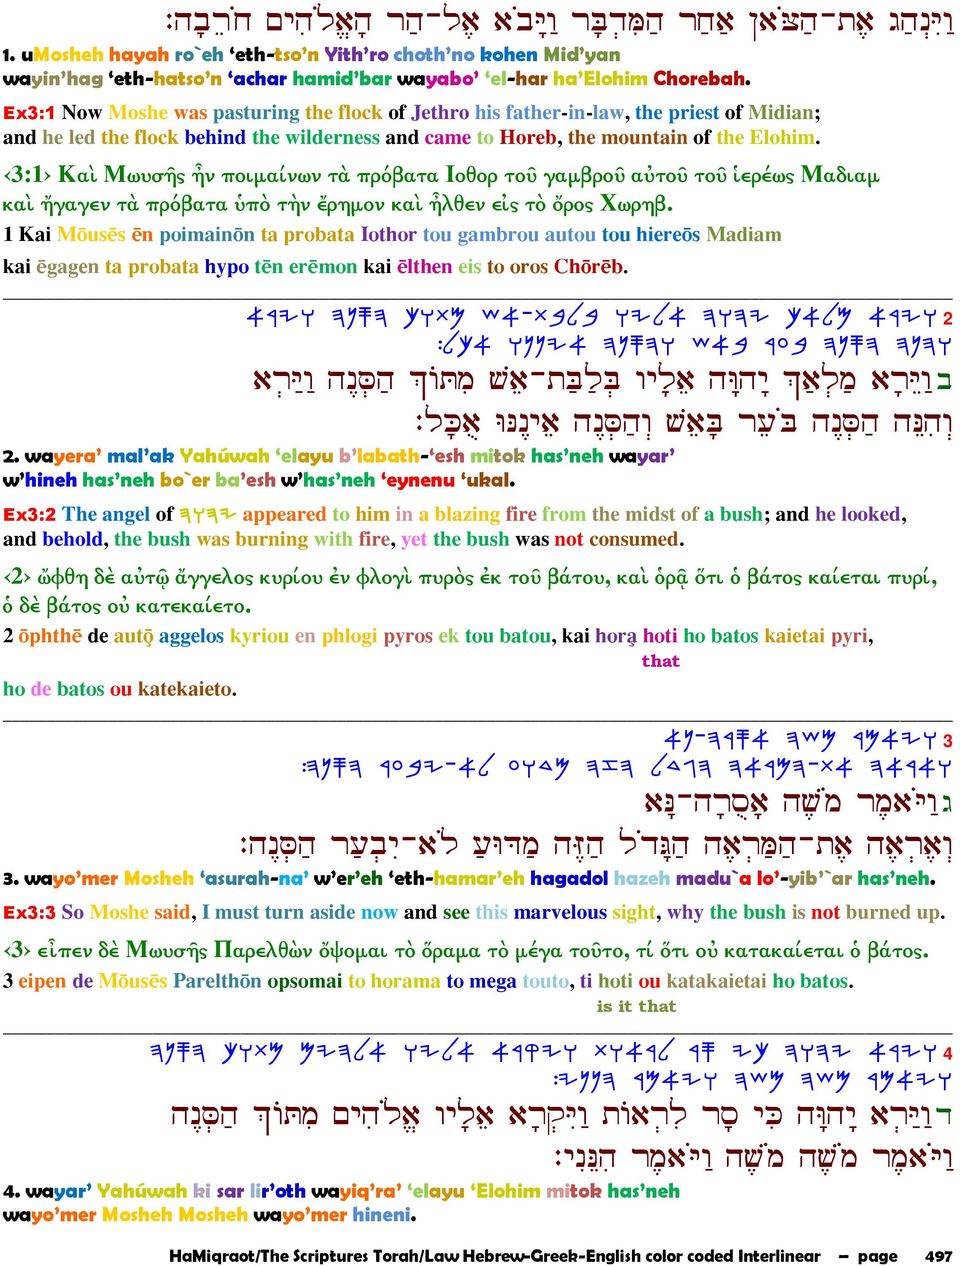 וַיִּנְהַג אֶת־הַצֹּאן אַחַר הַמִּדְבָּר וַיָּבֹא אֶל־הַר הָאֱלֹהִים חֹרֵבָה׃
1. uMosheh hayah ro`eh ‘eth-tso’n Yith’ro choth’no kohen Mid’yan
wayin’hag ‘eth-hatso’n ‘achar hamid’bar wayabo’ ‘el-har ha’Elohim Chorebah.
Ex3:1 Now Moshe was pasturing the flock of Jethro his father-in-law, the priest of Midian;
and he led the flock behind the wilderness and came to Horeb, the mountain of the Elohim.
‹3:1› Καὶ Μωυσῆς ἦν ποιμαίνων τὰ πρόβατα Ιοθορ τοῦ γαμβροῦ αὐτοῦ τοῦ ἱερέως Μαδιαμ
καὶ ἤγαγεν τὰ πρόβατα ὑπὸ τὴν ἔρημον καὶ ἦλθεν εἰς τὸ ὄρος Χωρηβ.
1 Kai Mōusēs ēn poimainōn ta probata Iothor tou gambrou autou tou hiereōs Madiam
kai ēgagen ta probata hypo tēn erēmon kai ēlthen eis to oros Chōrēb.
2 𐤅𐤉𐤓𐤀 𐤌𐤋𐤀𐤊 𐤉𐤄𐤅𐤄 𐤀𐤋𐤉𐤅 𐤁𐤋𐤁𐤕-𐤀𐤔 𐤌𐤕𐤅𐤊 𐤄𐤎𐤍𐤄 𐤅𐤉𐤓𐤀
𐤅𐤄𐤍𐤄 𐤄𐤎𐤍𐤄 𐤁𐤏𐤓 𐤁𐤀𐤔 𐤅𐤄𐤎𐤍𐤄 𐤀𐤉𐤍𐤍𐤅 𐤀𐤊𐤋:
ב וַיֵּרָא מַלְאַךְ יָהוּה אֵלָיו בְּלַבַּת־אֵשׁ מִתּוֹךְ הַסְּנֶה וַיַּרְא
וְהִנֵּה הַסְּנֶה בֹּעֵר בָּאֵשׁ וְהַסְּנֶה אֵינֶנּוּ אֻכָּל׃
2. wayera’ mal’ak Yahúwah ‘elayu b’labath-‘esh mitok has’neh wayar’
w’hineh has’neh bo`er ba’esh w’has’neh ‘eynenu ‘ukal.
Ex3:2 The angel of 𐤉𐤄𐤅𐤄 appeared to him in a blazing fire from the midst of a bush; and he looked,
and behold, the bush was burning with fire, yet the bush was not consumed.
‹2› ὤφθη δὲ αὐτῷ ἄγγελος κυρίου ἐν φλογὶ πυρὸς ἐκ τοῦ βάτου, καὶ ὁρᾷ ὅτι ὁ βάτος καίεται πυρί,
ὁ δὲ βάτος οὐ κατεκαίετο.
2 ōphthē de autō̧ aggelos kyriou en phlogi pyros ek tou batou, kai hora̧ hoti ho batos kaietai pyri,
that
ho de batos ou katekaieto.
3 𐤅𐤉𐤀𐤌𐤓 𐤌𐤔𐤄 𐤀𐤎𐤓𐤄-𐤍𐤀
𐤅𐤀𐤓𐤀𐤄 𐤀𐤕-𐤄𐤌𐤓𐤀𐤄 𐤄𐤂𐤃𐤋 𐤄𐤆𐤄 𐤌𐤃𐤅𐤏 𐤋𐤀-𐤉𐤁𐤏𐤓 𐤄𐤎𐤍𐤄:
ג וַיֹּאמֶר מֹשֶׁה אָסֻרָה־נָּא
וְאֶרְאֶה אֶת־הַמַּרְאֶה הַגָּדֹל הַזֶּה מַדּוּעַ לֹא־יִבְעַר הַסְּנֶה׃
3. wayo’mer Mosheh ‘asurah-na’ w’er’eh ‘eth-hamar’eh hagadol hazeh madu`a lo’-yib’`ar has’neh.
Ex3:3 So Moshe said, I must turn aside now and see this marvelous sight, why the bush is not burned up.
‹3› εἶπεν δὲ Μωυσῆς Παρελθὼν ὄψομαι τὸ ὅραμα τὸ μέγα τοῦτο, τί ὅτι οὐ κατακαίεται ὁ βάτος.
3 eipen de Mōusēs Parelthōn opsomai to horama to mega touto, ti hoti ou katakaietai ho batos.
is it that
4 𐤅𐤉𐤓𐤀 𐤉𐤄𐤅𐤄 𐤊𐤉 𐤎𐤓 𐤋𐤓𐤀𐤅𐤕 𐤅𐤉𐤒𐤓𐤀 𐤀𐤋𐤉𐤅 𐤀𐤋𐤄𐤉𐤌 𐤌𐤕𐤅𐤊 𐤄𐤎𐤍𐤄
𐤅𐤉𐤀𐤌𐤓 𐤌𐤔𐤄 𐤌𐤔𐤄 𐤅𐤉𐤀𐤌𐤓 𐤄𐤍𐤍𐤉:
ד וַיַּרְא יָהוּה כִּי סָר לִרְאוֹת וַיִּקְרָא אֵלָיו אֱלֹהִים מִתּוֹךְ הַסְּנֶה
וַיֹּאמֶר מֹשֶׁה מֹשֶׁה וַיֹּאמֶר הִנֵּנִי׃
4. wayar’ Yahúwah ki sar lir’oth wayiq’ra’ ‘elayu ‘Elohim mitok has’neh
wayo’mer Mosheh Mosheh wayo’mer hineni.
HaMiqraot/The Scriptures Torah/Law Hebrew-Greek-English color coded Interlinear – page 497